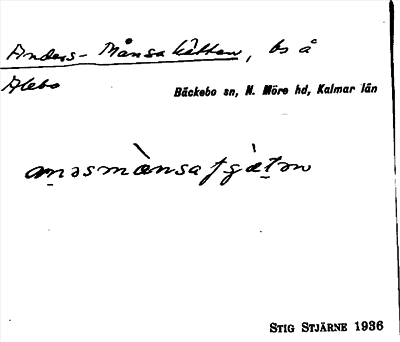 Anders-Månsakätten, bs å
Alebo
Bäckebo sn, N. Möre hd, Kalmar län
STIG STJÄRNE 1936